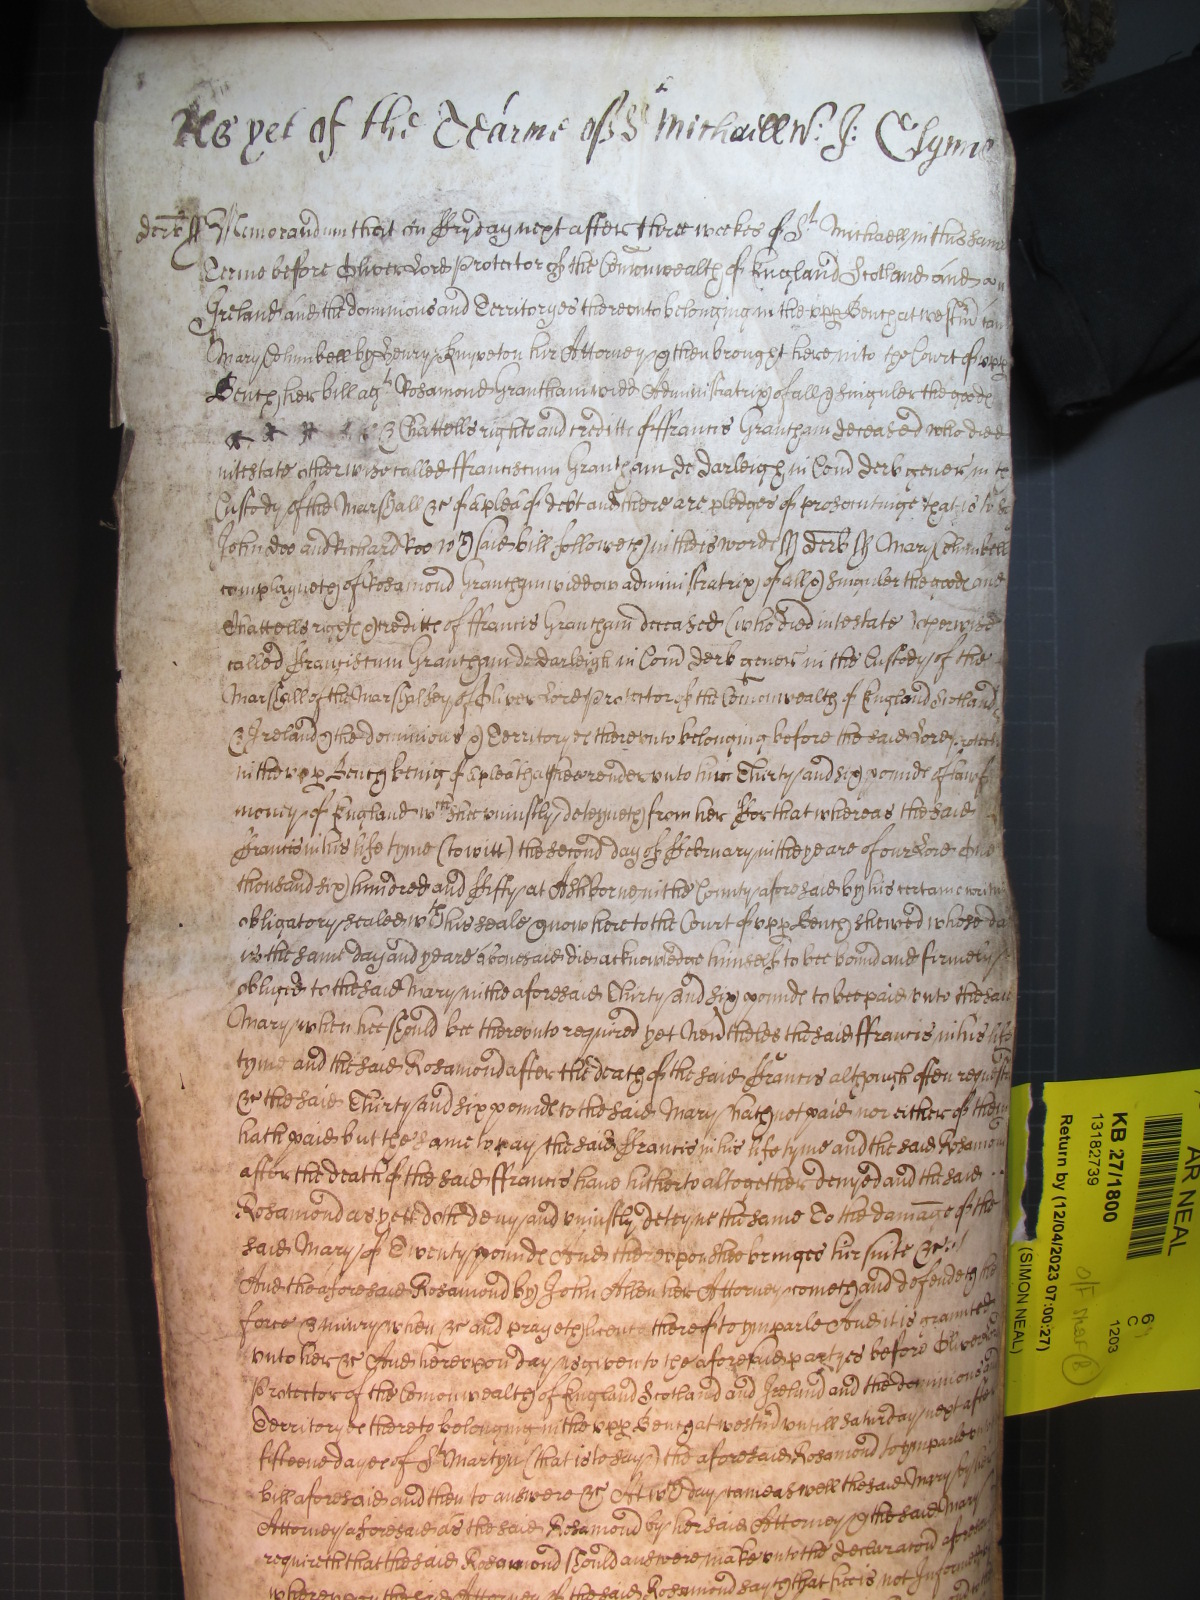 As yet of the Tearme of St Michaell W: J: Glynne
derb ss Memorandum that on Fryday next after three weekes of St Michaell in this same
Terme before Oliver Lord Protector of the Comonwealth of England Scotland and
Ireland and the dominions and Territoryes thereunto belonging in the upp Bench at westm came
Mary Columbell by Henry Kinveton hir Attorney & then brought here into the Court of upp
Bench her bill agt Rosamond Grantham widd Administratrix of all & singuler the goods
& Chattells rights and creditts of ffrancis Grantham deceased who died
intestate otherwise called ffranciscum Grantham de darleigh in Com derb gener in the
Custody of the Marshall &c of a plea of debt and there are pledges of prosecutinge that is to say
John doo and Richard Roo wch said bill followeth in theis words ss derb ss Mary Columbell
complayneth of Rosamond Grantham widdow administratrix of all & singuler the goods and
Chattells rights & creditts of ffrancis Grantham deceased (who died intestate) otherwise
called ffranciscum Grantham de darleigh in Com derb gener in the Custody of the
Marshall of the Marshalsey of Oliver Lord Protector of the Comonwealth of England Scotland
& Ireland & the dominions & Territoryes thereunto belonging before the said Lord Protector
in the upp Bench being of a plea that she render unto him Thirty and six pounds of lawfull
money of England wch shee uniustly deteyneth from her ffor that whereas the said
ffrancis in his life tyme (to witt) the second day of ffebruary in the yeare of our Lord One
thousand six hundred and ffifty at Ashborne in the County aforesaid by his certaine writing
obligatory sealed wth his seale & now here to the Court of upp Bench shewed whose date
is the same day and yeare abovesaid did acknowledge himself to bee bound and firmely
obliged to the said Mary in the aforesaid Thirty and six pounds to bee paid unto the said
Mary when hee should bee thereunto required yet Neverthelesse the said ffrancis in his life
tyme and the said Rosamond after the death of the said ffrancis although often requested
&c the said Thirty and six pounds to the said Mary hath not paid nor either of them
hath paid but the same to pay the said ffrancis in his life tyme and the said Rosamond
after the death of the said ffrancis have hitherto altogether denyed and the said
Rosamond as yett doth deny and uniustly deteyne the same To the damage of the
said Mary of Twenty pounds And thereupon shee bringes hir suite &c
And the aforesaid Rosamond by John Allen her Attorney cometh and defendeth the
force & iniury when &c and prayeth licence thereof to ymparle And it is graunted
unto her &c And hereupon day is given to the aforesaid partyes before Oliver Lord
Protector of the Comonwealth of England Scotland and Ireland and the dominions and
Territoryes thereto belonging in the upp Bench at westm untill Saturday next after
fifteene dayes of St Martyn (that is to say) the aforesaid Rosamond to ymparle
bill aforesaid and then to answere &c At wch day came as well the said Mary by her
Attorney aforesaid as the said Rosamond by her said Attorney & the said Mary
requireth that the said Rosamond should answere make unto the declaracon aforesaid
whereupon the said Attorney of the said Rosamond sayth that hee is not Informed
AR NEAL
KB 27/1800
13182739
Return by (12/04/2023 07:00:27)
(SIMON NEAL)
1203
C